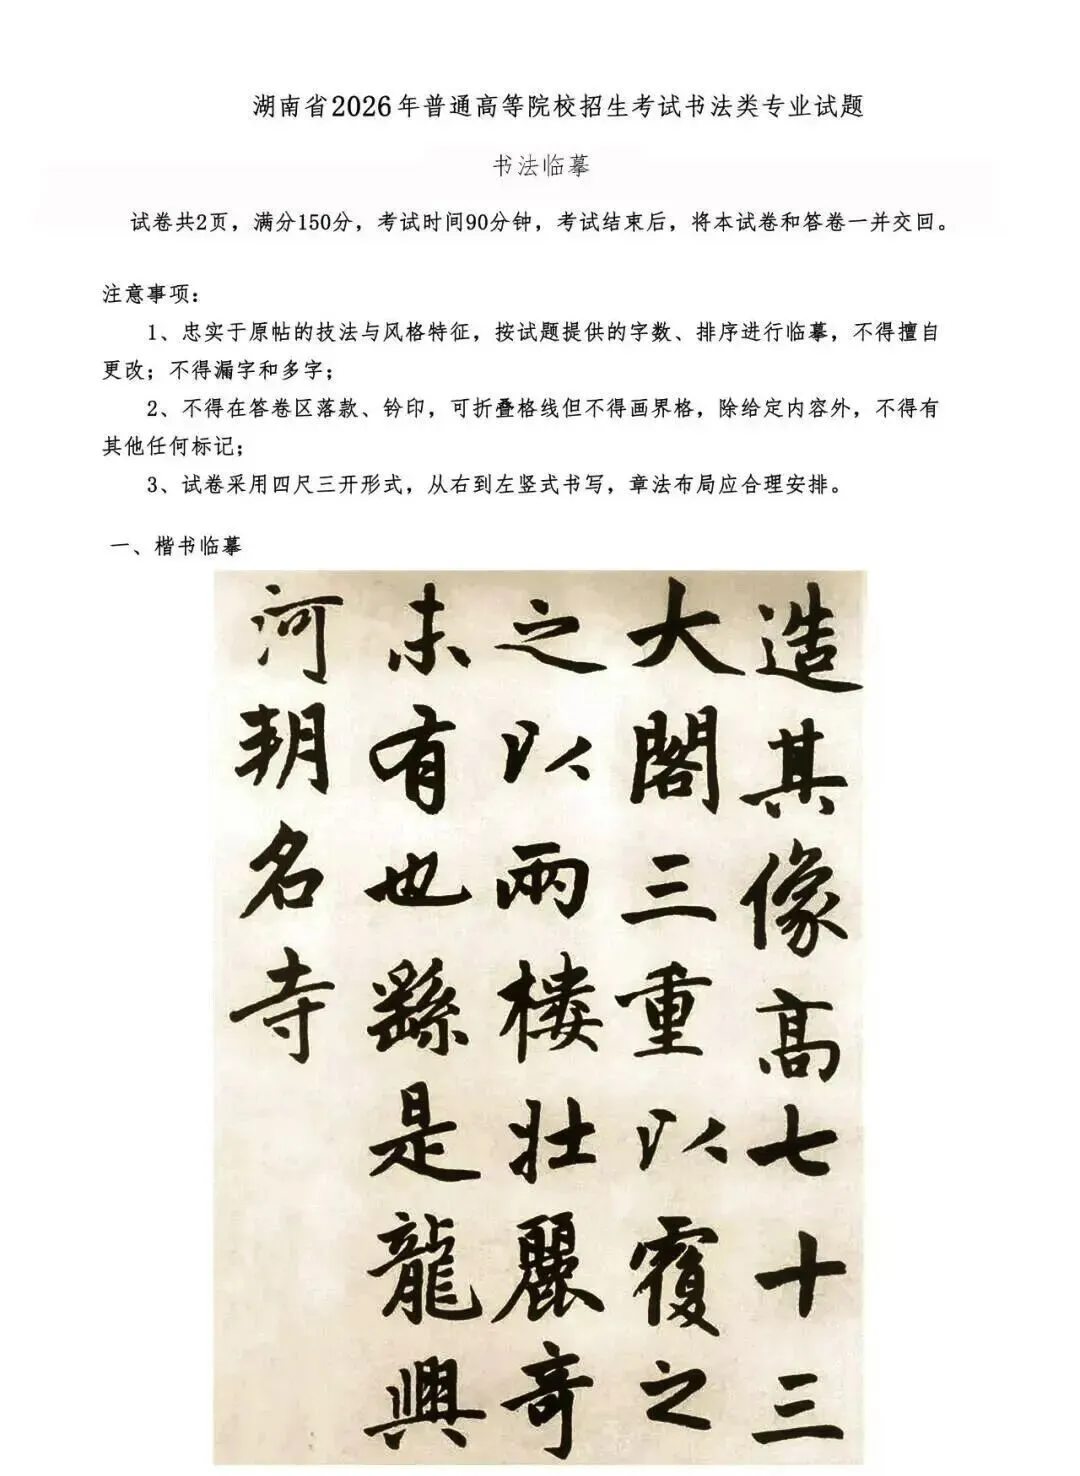 湖南省2026年普通高等院校招生考试书法类专业试题
书法临摹
试卷共2页，满分150分，考试时间90分钟，考试结束后，将本试卷和答卷一并交回。
注意事项：
1、忠实于原帖的技法与风格特征，按试题提供的字数、排序进行临摹，不得擅自
更改；不得漏字和多字；
2、不得在答卷区落款、钤印，可折叠格线但不得画界格，除给定内容外，不得有
其他任何标记；
3、试卷采用四尺三开形式，从右到左竖式书写，章法布局应合理安排。
一、楷书临摹
造其像高七十三
大閣三重以覆之
之以兩樓壯麗奇
未有也繇是龍興
河朔名寺